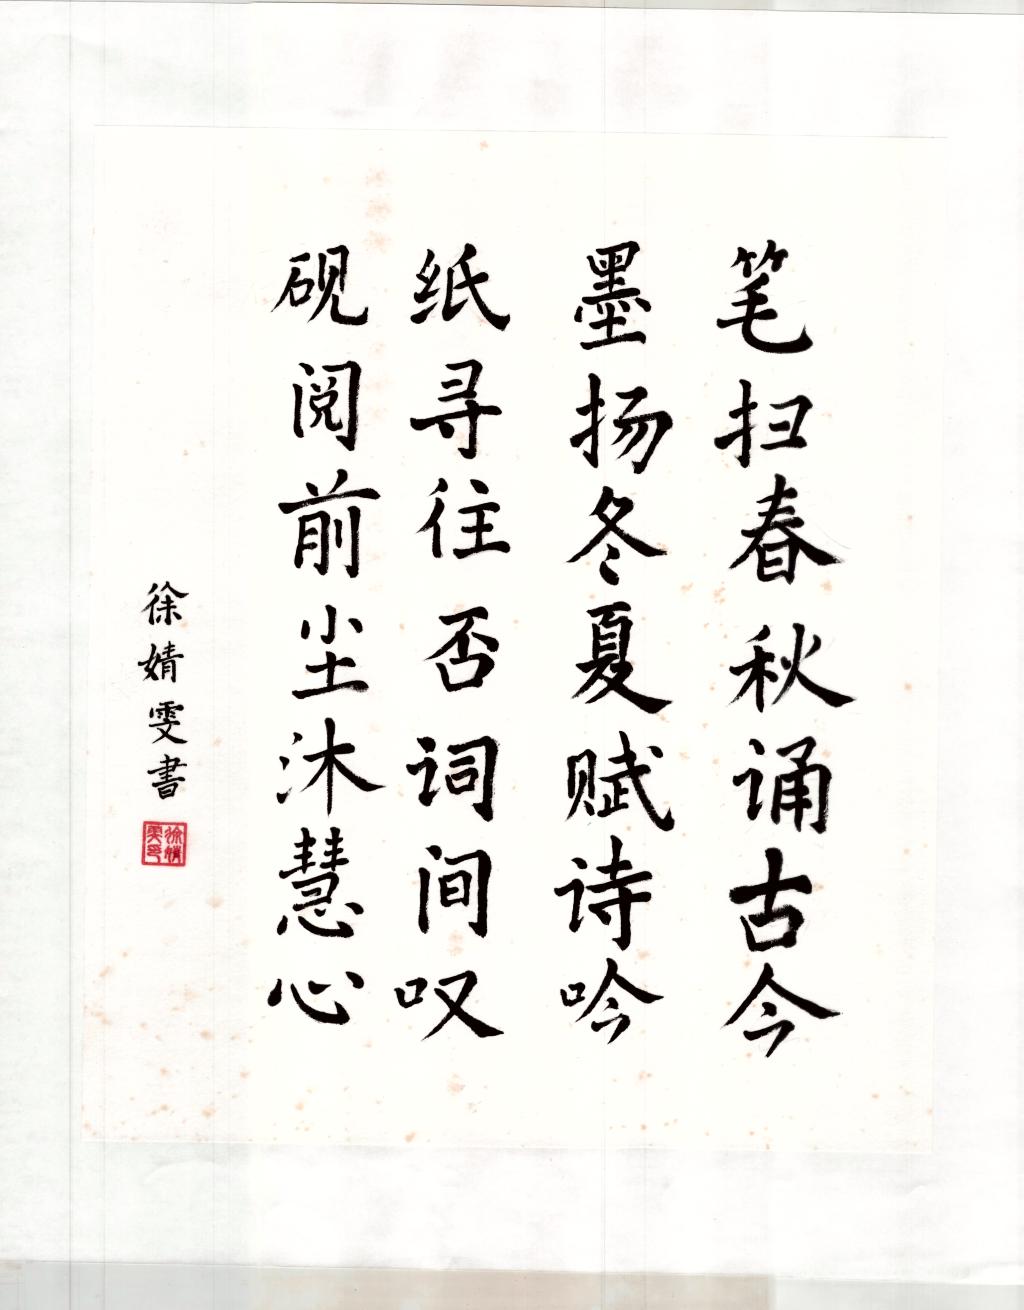 笔扫春秋诵古今
墨扬冬夏赋诗吟
纸寻往否词间叹
砚阅前尘沐慧心
徐婧雯書